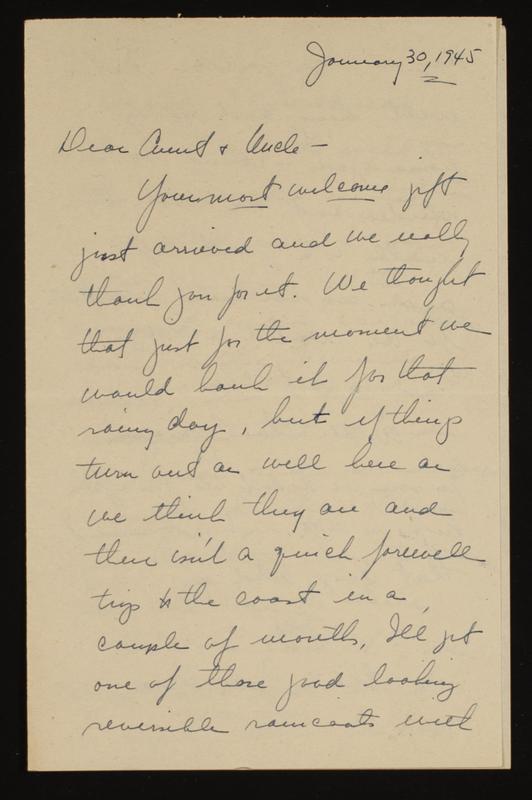 January 30, 1945
Dear Aunt & Uncle –
Your most welcome gift
just arrived and we really
thank you for it. We thought
that just for the moment we
would bank it for that
rainy day, but if things
turn out as well here as
we think they are and
there isn't a quick farewell
trip to the coast in a
couple of months, I'll get
one of those good looking
reversible raincoats with